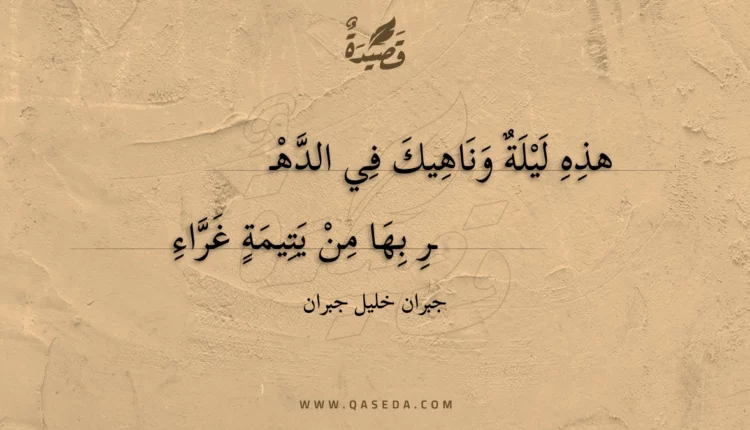 قَصِيدَةٌ
هذِهِ لَيْلَةٌ وَنَاهِيكَ فِي الدَّهْـ
ـرِ بِهَا مِنْ يَتِيمَةٍ غَرَّاءِ
جبران خليل جبران
WWW.QASEDA.COM